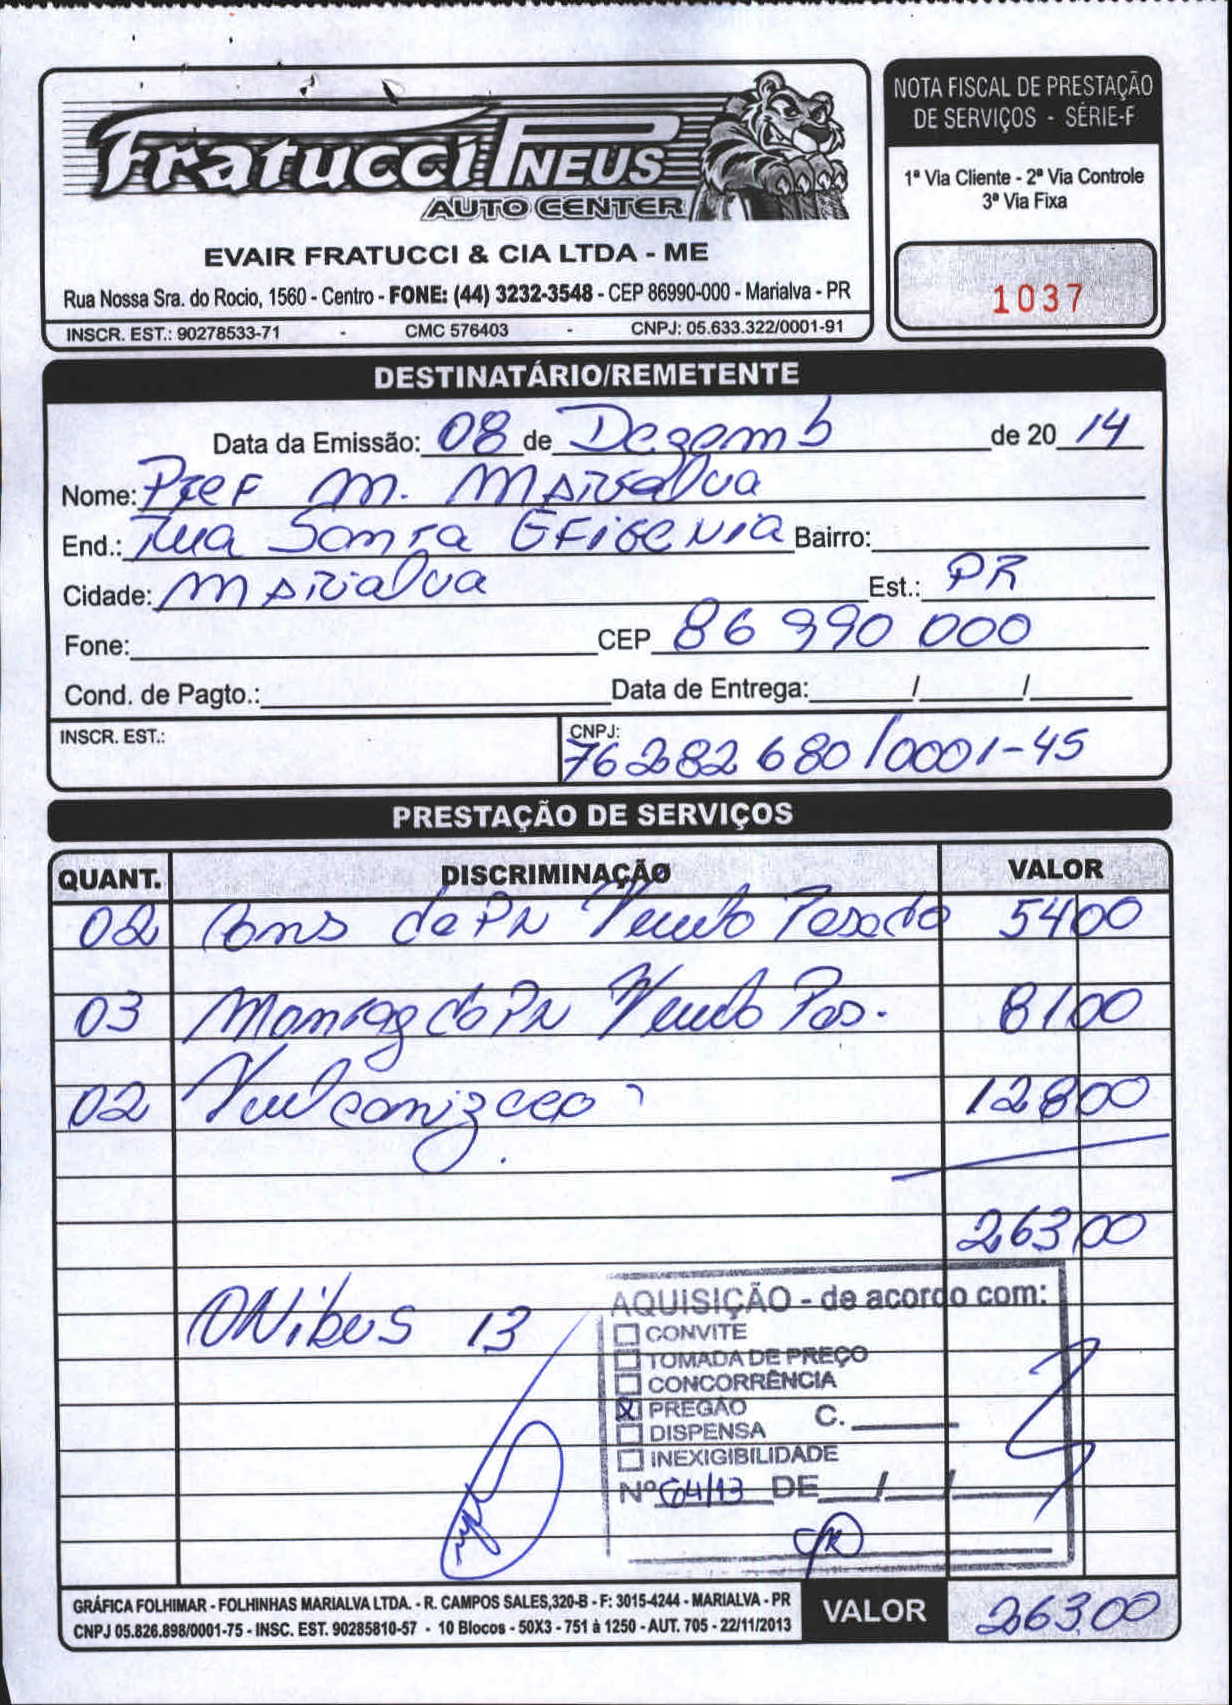 Fratucci PNEUS
AUTO CENTER
EVAIR FRATUCCI & CIA LTDA - ME
Rua Nossa Sra. do Rocio, 1560 - Centro - FONE: (44) 3232-3548 - CEP 86990-000 - Marialva - PR
INSCR. EST.: 90278533-71 - CMC 576403 - CNPJ: 05.633.322/0001-91
NOTA FISCAL DE PRESTAÇÃO
DE SERVIÇOS - SÉRIE-F
1ª Via Cliente - 2ª Via Controle
3ª Via Fixa
1037
DESTINATÁRIO/REMETENTE
Data da Emissão: 08 de Dezemb de 20 14
Nome: Pref M. Marialva
End.: Rua Santa Efigenia Bairro:
Cidade: Marialva Est.: PR
Fone: CEP 86 990 000
Cond. de Pagto.: Data de Entrega: / /
INSCR. EST.: CNPJ: 76 282 680/0001-45
PRESTAÇÃO DE SERVIÇOS
QUANT. DISCRIMINAÇÃO VALOR
02 Cons de PN Pesado 54 00
03 Montag do PN Pes. 81 00
02 Vulcanizacao 128 00
263 00
ONibus 13
AQUISIÇÃO - de acordo com:
CONVITE
TOMADA DE PREÇO
CONCORRÊNCIA
X PREGÃO C.
DISPENSA
INEXIGIBILIDADE
Nº 64/13 DE / /
GRÁFICA FOLHIMAR - FOLHINHAS MARIALVA LTDA. - R. CAMPOS SALES,320-B - F: 3015-4244 - MARIALVA - PR
CNPJ 05.826.898/0001-75 - INSC. EST. 90285810-57 - 10 Blocos - 50X3 - 751 à 1250 - AUT. 705 - 22/11/2013
VALOR 263.00